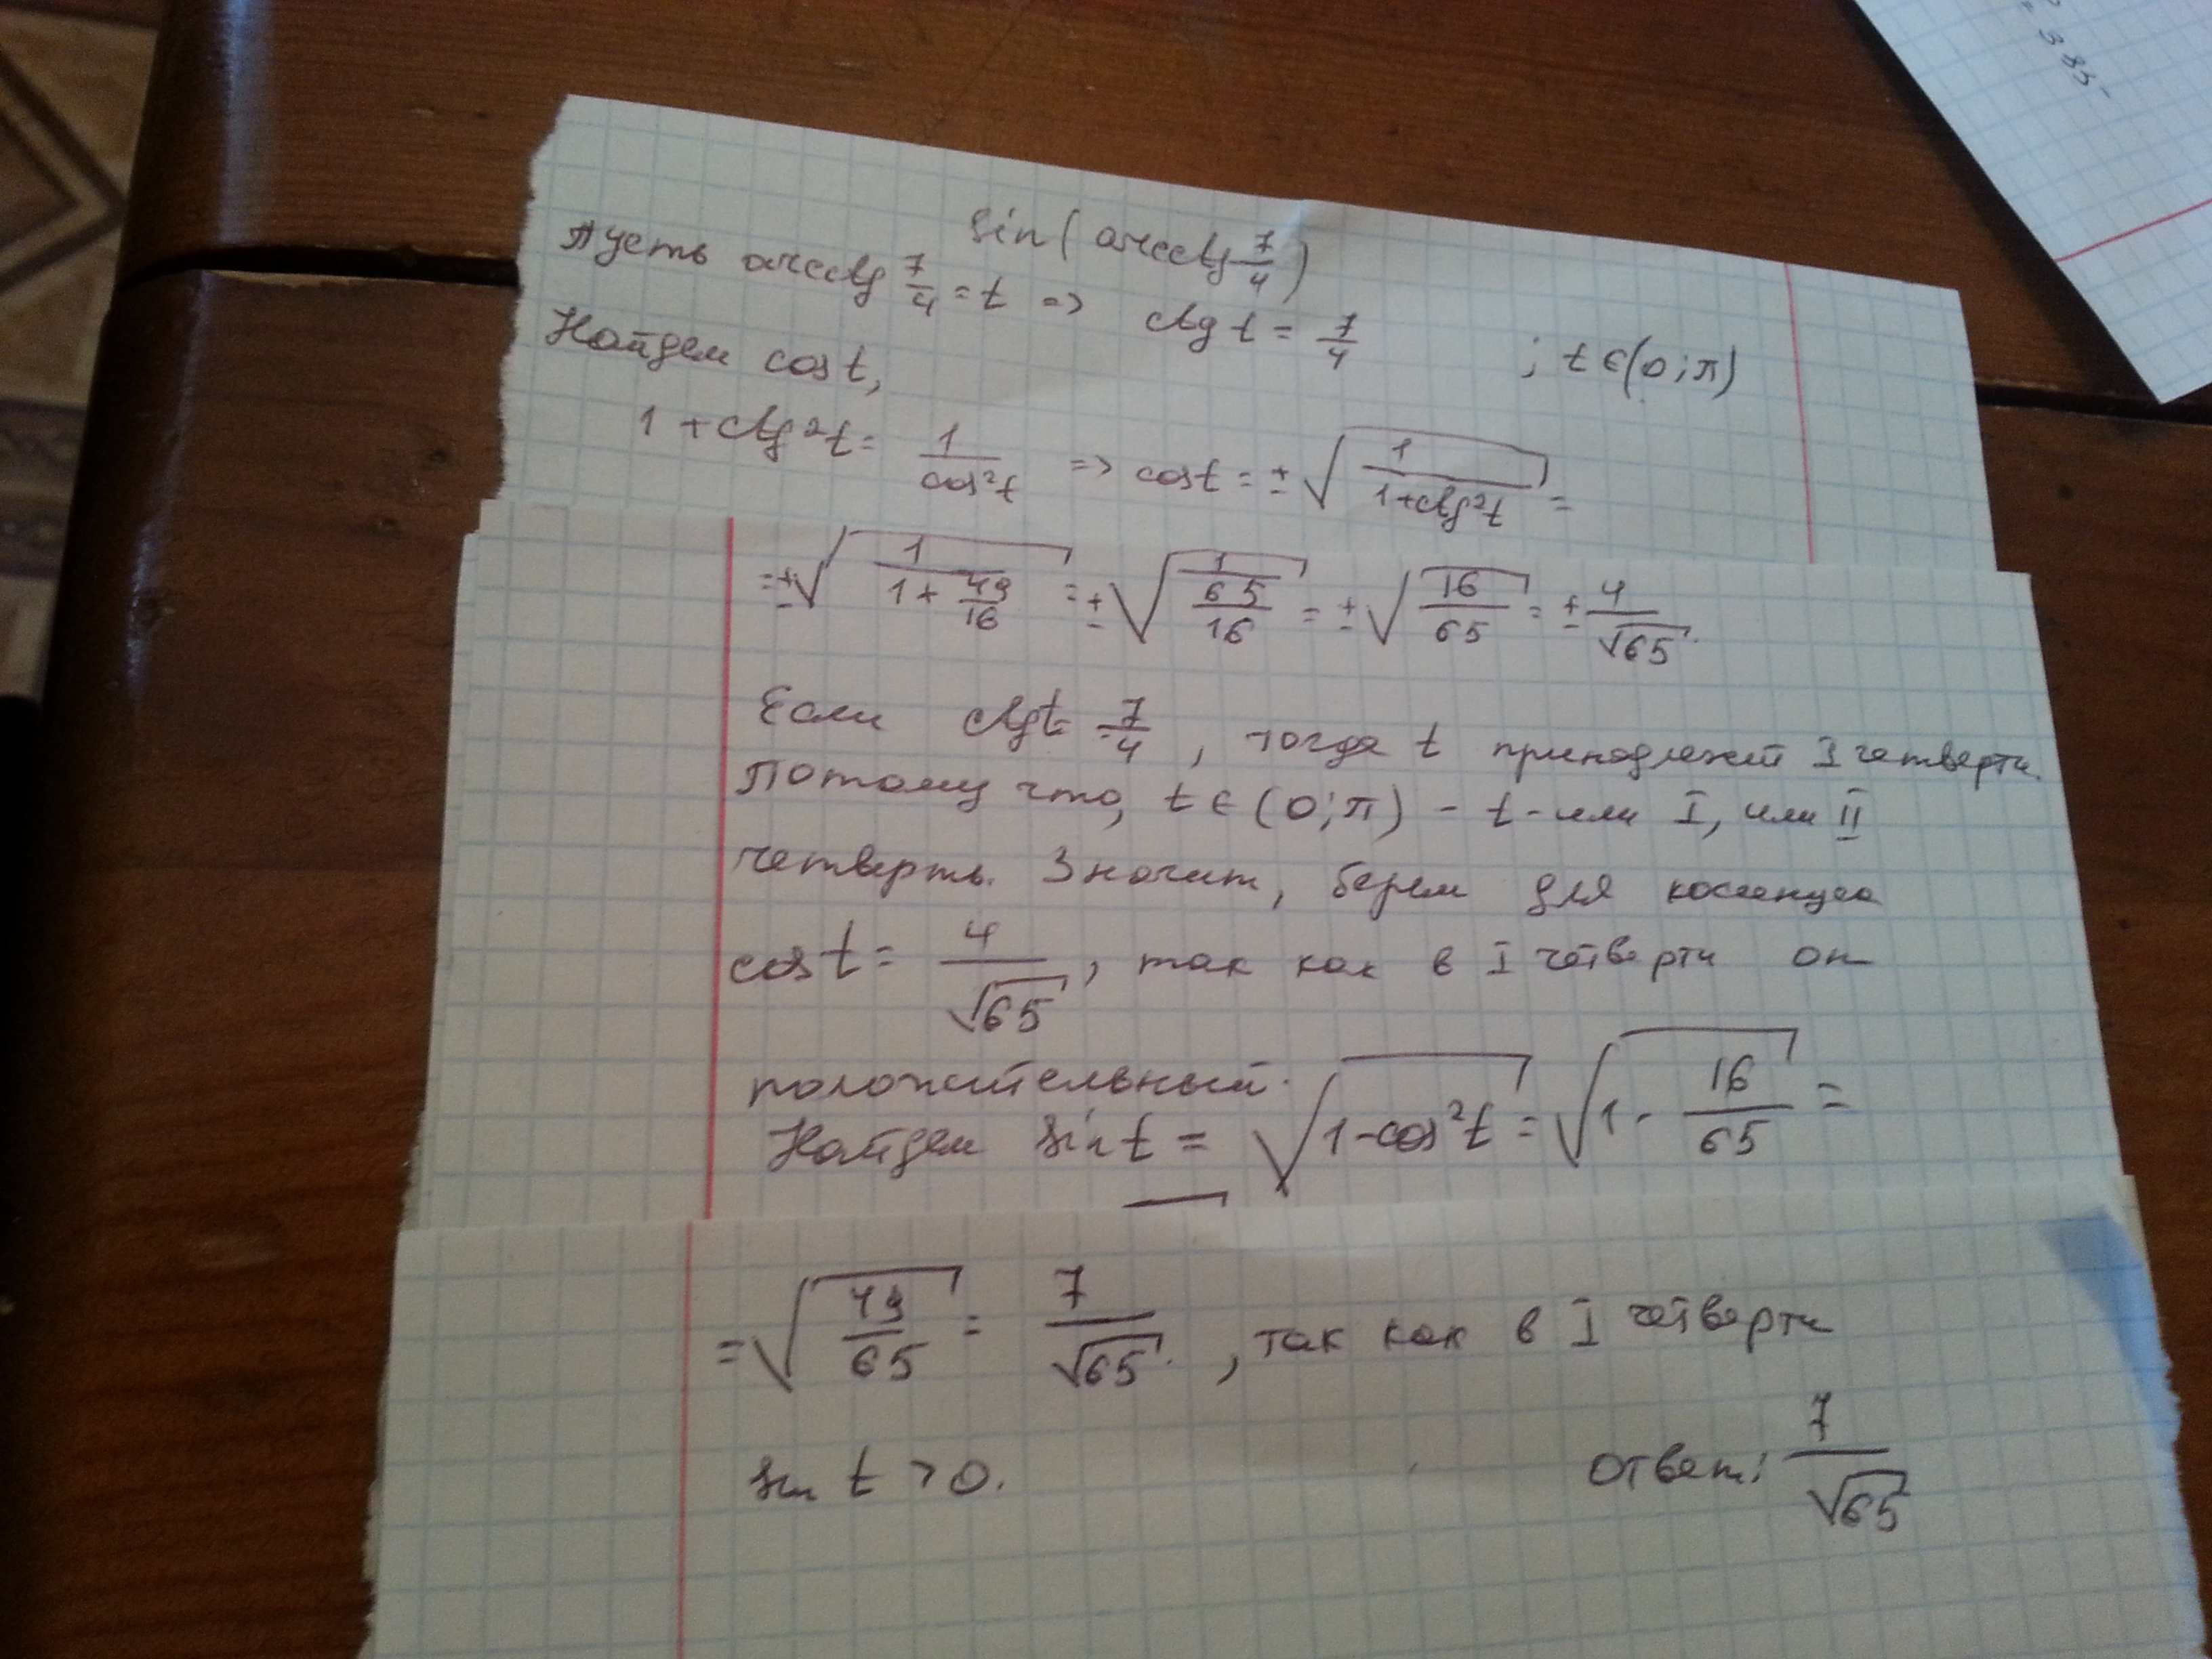 sin(arcctg 7/4)
Пусть arcctg 7/4 = t => ctg t = 7/4 ; t ∈ (0; π)
Найдем cos t,
1 + ctg²t = 1/cos²t => cos t = ± √(1/(1+ctg²t)) =
= ± √(1/(1 + 49/16)) = ± √(1/(65/16)) = ± √(16/65) = ± 4/√65.
Если ctg t = 7/4, тогда t принадлежит I четверти.
Потому что, t ∈ (0; π) - t - или I, или II
четверть. Значит, берем для косинуса
cos t = 4/√65, так как в I четверти он
положительный.
Найдем sin t = √(1-cos²t) = √(1 - 16/65) =
= √(49/65) = 7/√65., так как в I четверти
sin t > 0.
Ответ: 7/√65